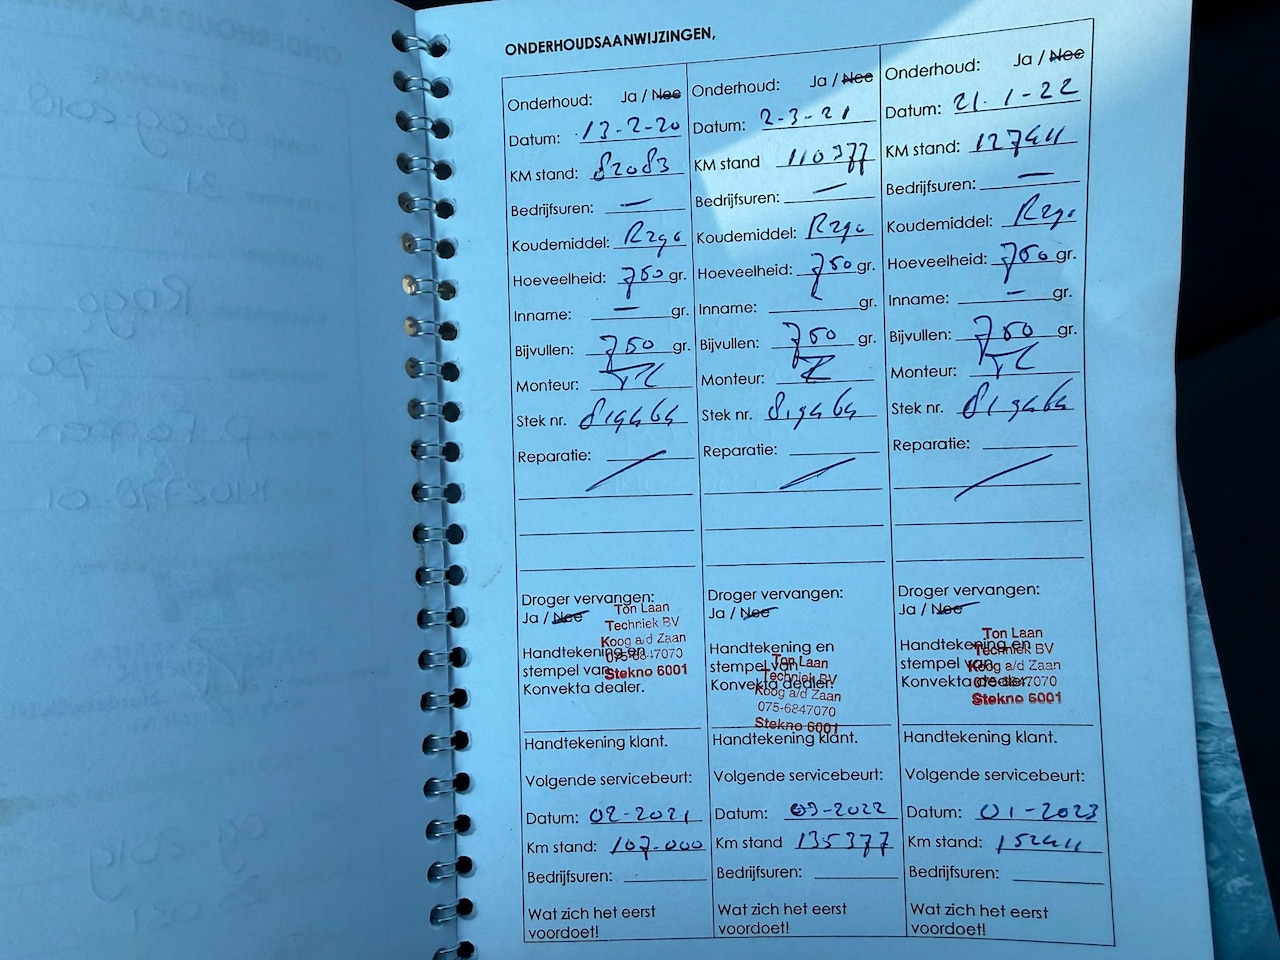 ONDERHOUDSAANWIJZINGEN,
Onderhoud: Ja / Nee
Datum: 13-2-20
KM stand: 82083
Bedrijfsuren: —
Koudemiddel:
Hoeveelheid: 750 gr.
Inname: — gr.
Bijvullen: 750 gr.
Monteur:
Stek nr.
Reparatie:
Droger vervangen:
Ja / Nee
Handtekening en
stempel van
Konvekta dealer.
Ton Laan
Techniek BV
Koog a/d Zaan
075-6847070
Stekno 6001
Handtekening klant.
Volgende servicebeurt:
Datum: 02-2021
Km stand: 107.000
Bedrijfsuren:
Wat zich het eerst
voordoet!
Onderhoud: Ja / Nee
Datum: 2-3-21
KM stand 110377
Bedrijfsuren: —
Koudemiddel:
Hoeveelheid: 750 gr.
Inname: gr.
Bijvullen: 750 gr.
Monteur:
Stek nr.
Reparatie:
Droger vervangen:
Ja / Nee
Handtekening en
stempel van
Konvekta dealer.
Ton Laan
Techniek BV
Koog a/d Zaan
075-6847070
Stekno 6001
Handtekening klant.
Volgende servicebeurt:
Datum: 03-2022
Km stand 135377
Bedrijfsuren:
Wat zich het eerst
voordoet!
Onderhoud: Ja / Nee
Datum: 21-1-22
KM stand: 127411
Bedrijfsuren: —
Koudemiddel:
Hoeveelheid: 750 gr.
Inname: — gr.
Bijvullen: 750 gr.
Monteur:
Stek nr.
Reparatie:
Droger vervangen:
Ja / Nee
Handtekening en
stempel van
Konvekta dealer.
Ton Laan
Techniek BV
Koog a/d Zaan
075-6847070
Stekno 6001
Handtekening klant.
Volgende servicebeurt:
Datum: 01-2023
Km stand: 152411
Bedrijfsuren:
Wat zich het eerst
voordoet!